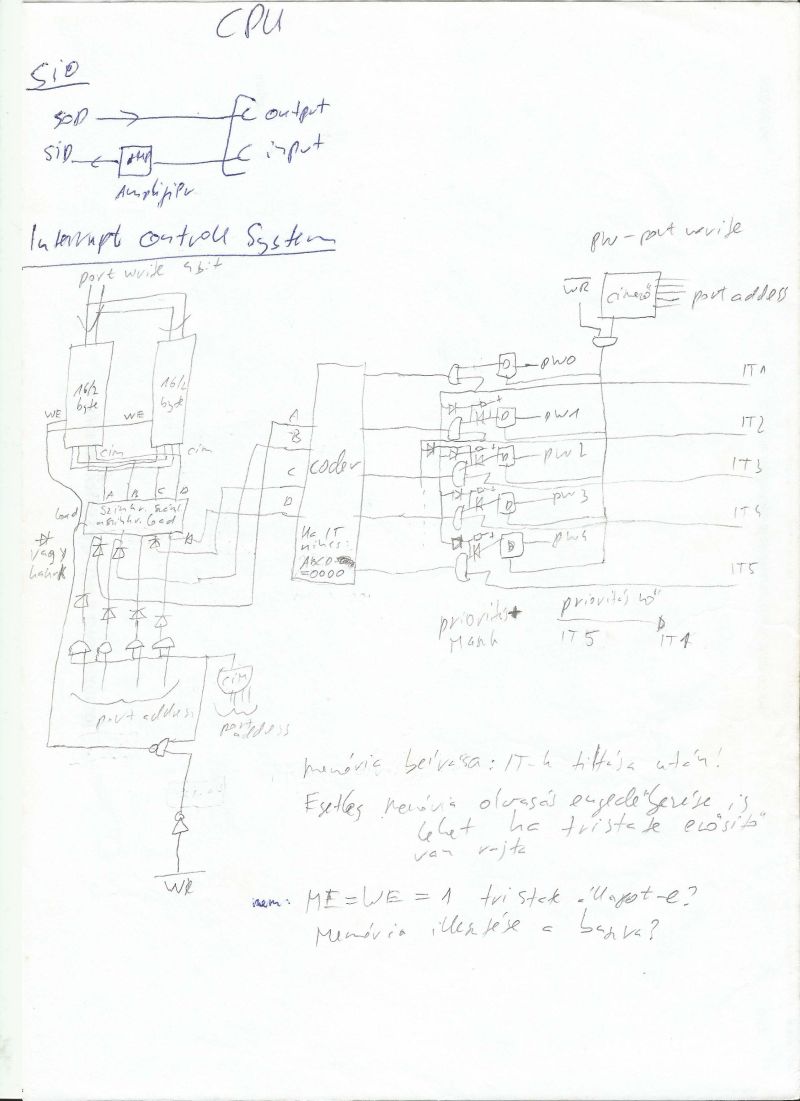 CPU
SiD
SOD output
SiD AMP input
Amplifier
Interrupt controll System
port write 4 bit
pw - port write
WR címző port address
16/2 byte
16/2 byte
WE WE
cím cím
A B C D
load
vagy
A
B
C
D
coder
Ha IT nincs:
ABCD
=0000
D pw0
IT1
D pw1
IT2
D pw2
IT3
D pw3
IT4
D pw4
IT5
prioritás
Mask
prioritás nő
IT5 IT1
port address
cím
port address
WR
memória beírása: IT-k tiltása után!
Esetleg memória olvasás engedélyezése is
lehet ha tristate erősítő
van rajta
mem: ME = WE = 1 tristate állapot-e?
Memória illesztése a buszra?